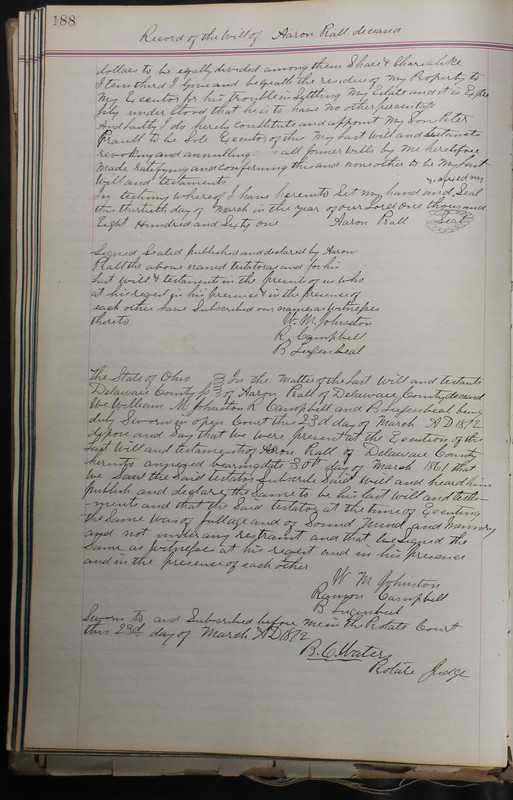 188
Record of the Will of Aaron Prall deceased
dollars to be eqally divided among them Share & Share alike
Item third I give and beqeath the residue of my Property to
My Executor for his trouble in Settling my Estate and it is Expre
ssly understood that he is to have no other percentage
And lastly I do hereby Constitute and appoint My Son Peter
Prall to be Sole Executor of this My last Will and testament
revoking and annulling all former wills by me heretofore
made ratifying and confirming this and none other to be My last
Will and testament
In testimony whereof I have hereunto Set my hand and affixed my Seal
this thirtieth day of March in the year of our Lord One thousand
Eight Hundred and Sixty one Aaron Prall Seal
Signed Sealed published and declared by Aaron
Prall the above named testator as and for his
last will & testament in the presence of us who
at his reqest in his presence & in the presence of
each other have Subscribed our names as witnesses
thereto W. M. Johnston
R. Campbell
B Lugenbeal
The State of Ohio In the Matter of the last Will and testamt
Delaware County ss of Aaron Prall of Delaware County deceased
We William M Johnston R Campbell and B Lugenbeal being
duly Sworn in open Court this 23d day of March AD 1872
depose and Say that we were present at the Execution of the
last Will and testament of Aaron Prall of Delaware County
hereunto annexed bearing date 30th day of March 1861 that
We Saw the Said testator Subscribe Said Will and heard him
publish and declare the Same to be his last will and testa-
ment and that the Said testator at the time of Executing
the Same Was of full age and of Sound Mind and Memory
and not under any restraint and that we signed the
Same as Witnesses at his reqest and in his presence
and in the presence of each other
W M Johnston
Ranson Campbell
B Lugenbeal
Sworn to and Subscribed before me in the Probate Court
this 23d day of March AD 1872
B. C. Waters
Probate Judge